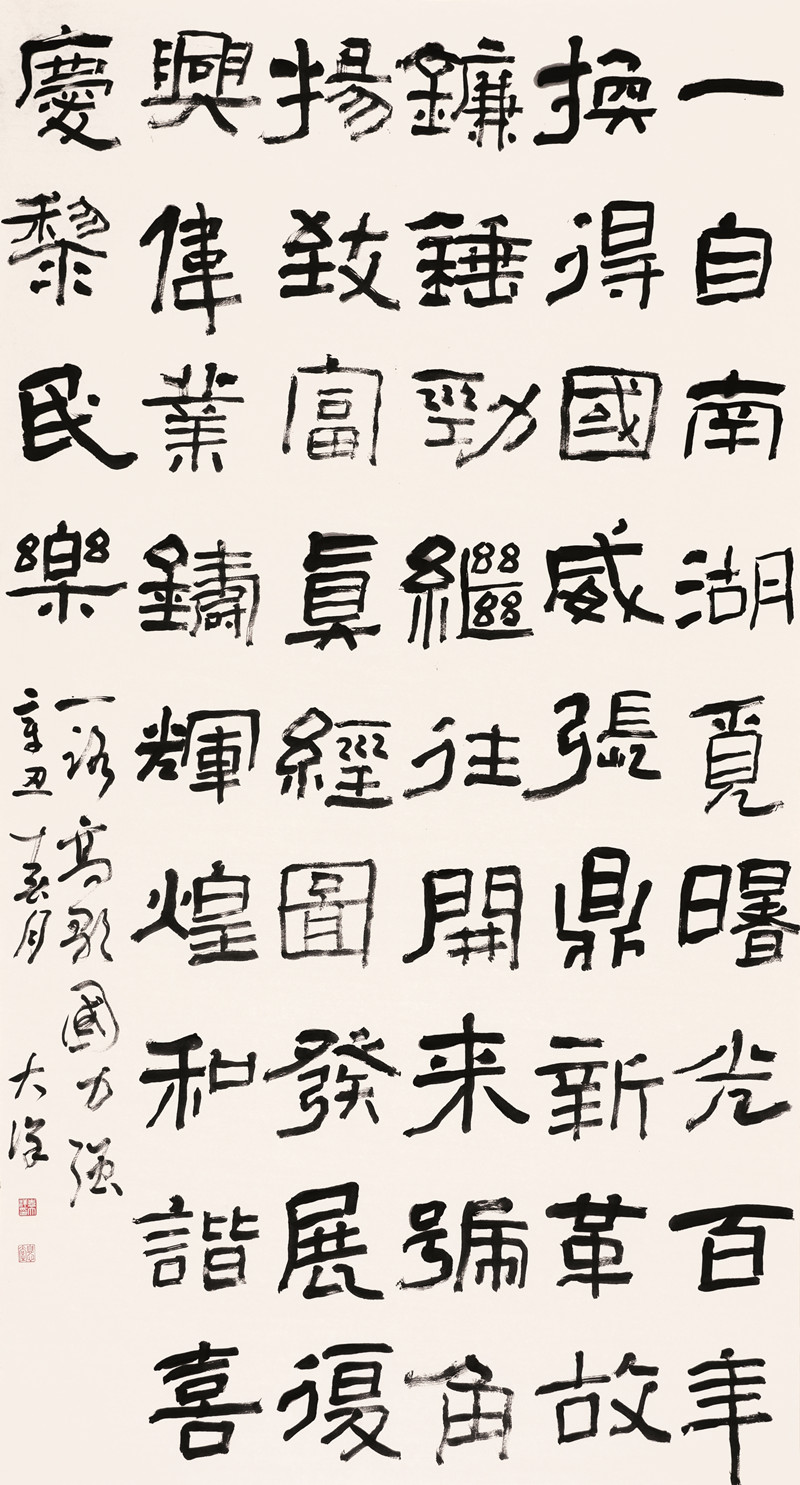 一自南湖覓曙光百年
換得國威張鼎新革故
鐮錘勁繼往開来號角
揚致富眞經圖發展復
興偉業鑄輝煌和諧喜
慶黎民樂
一路高歌國力强
辛丑春月 大